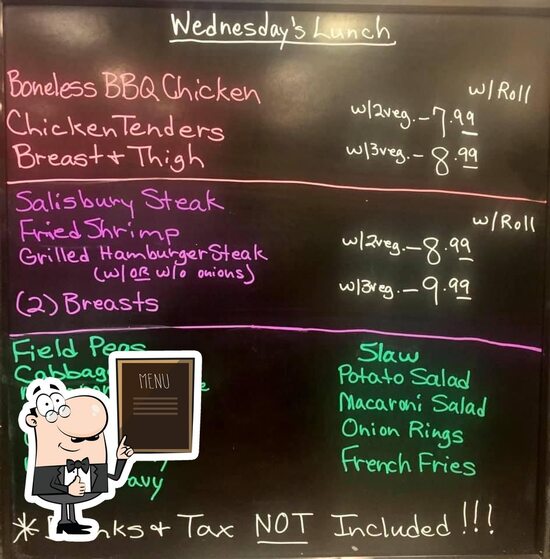 Wednesday's Lunch
Boneless BBQ Chicken
w/Roll
Chicken Tenders
w/2veg.-7.99
Breast + Thigh
w/3veg-8.99
Salisbury Steak
w/Roll
Fried Shrimp
w/2veg.-8.99
Grilled Hamburger Steak
(w/ OR w/o onions)
w/3veg.-9.99
(2) Breasts
Field Peas
Slaw
Potato Salad
Macaroni Salad
Onion Rings
French Fries
MENU
Tax NOT Included!!!